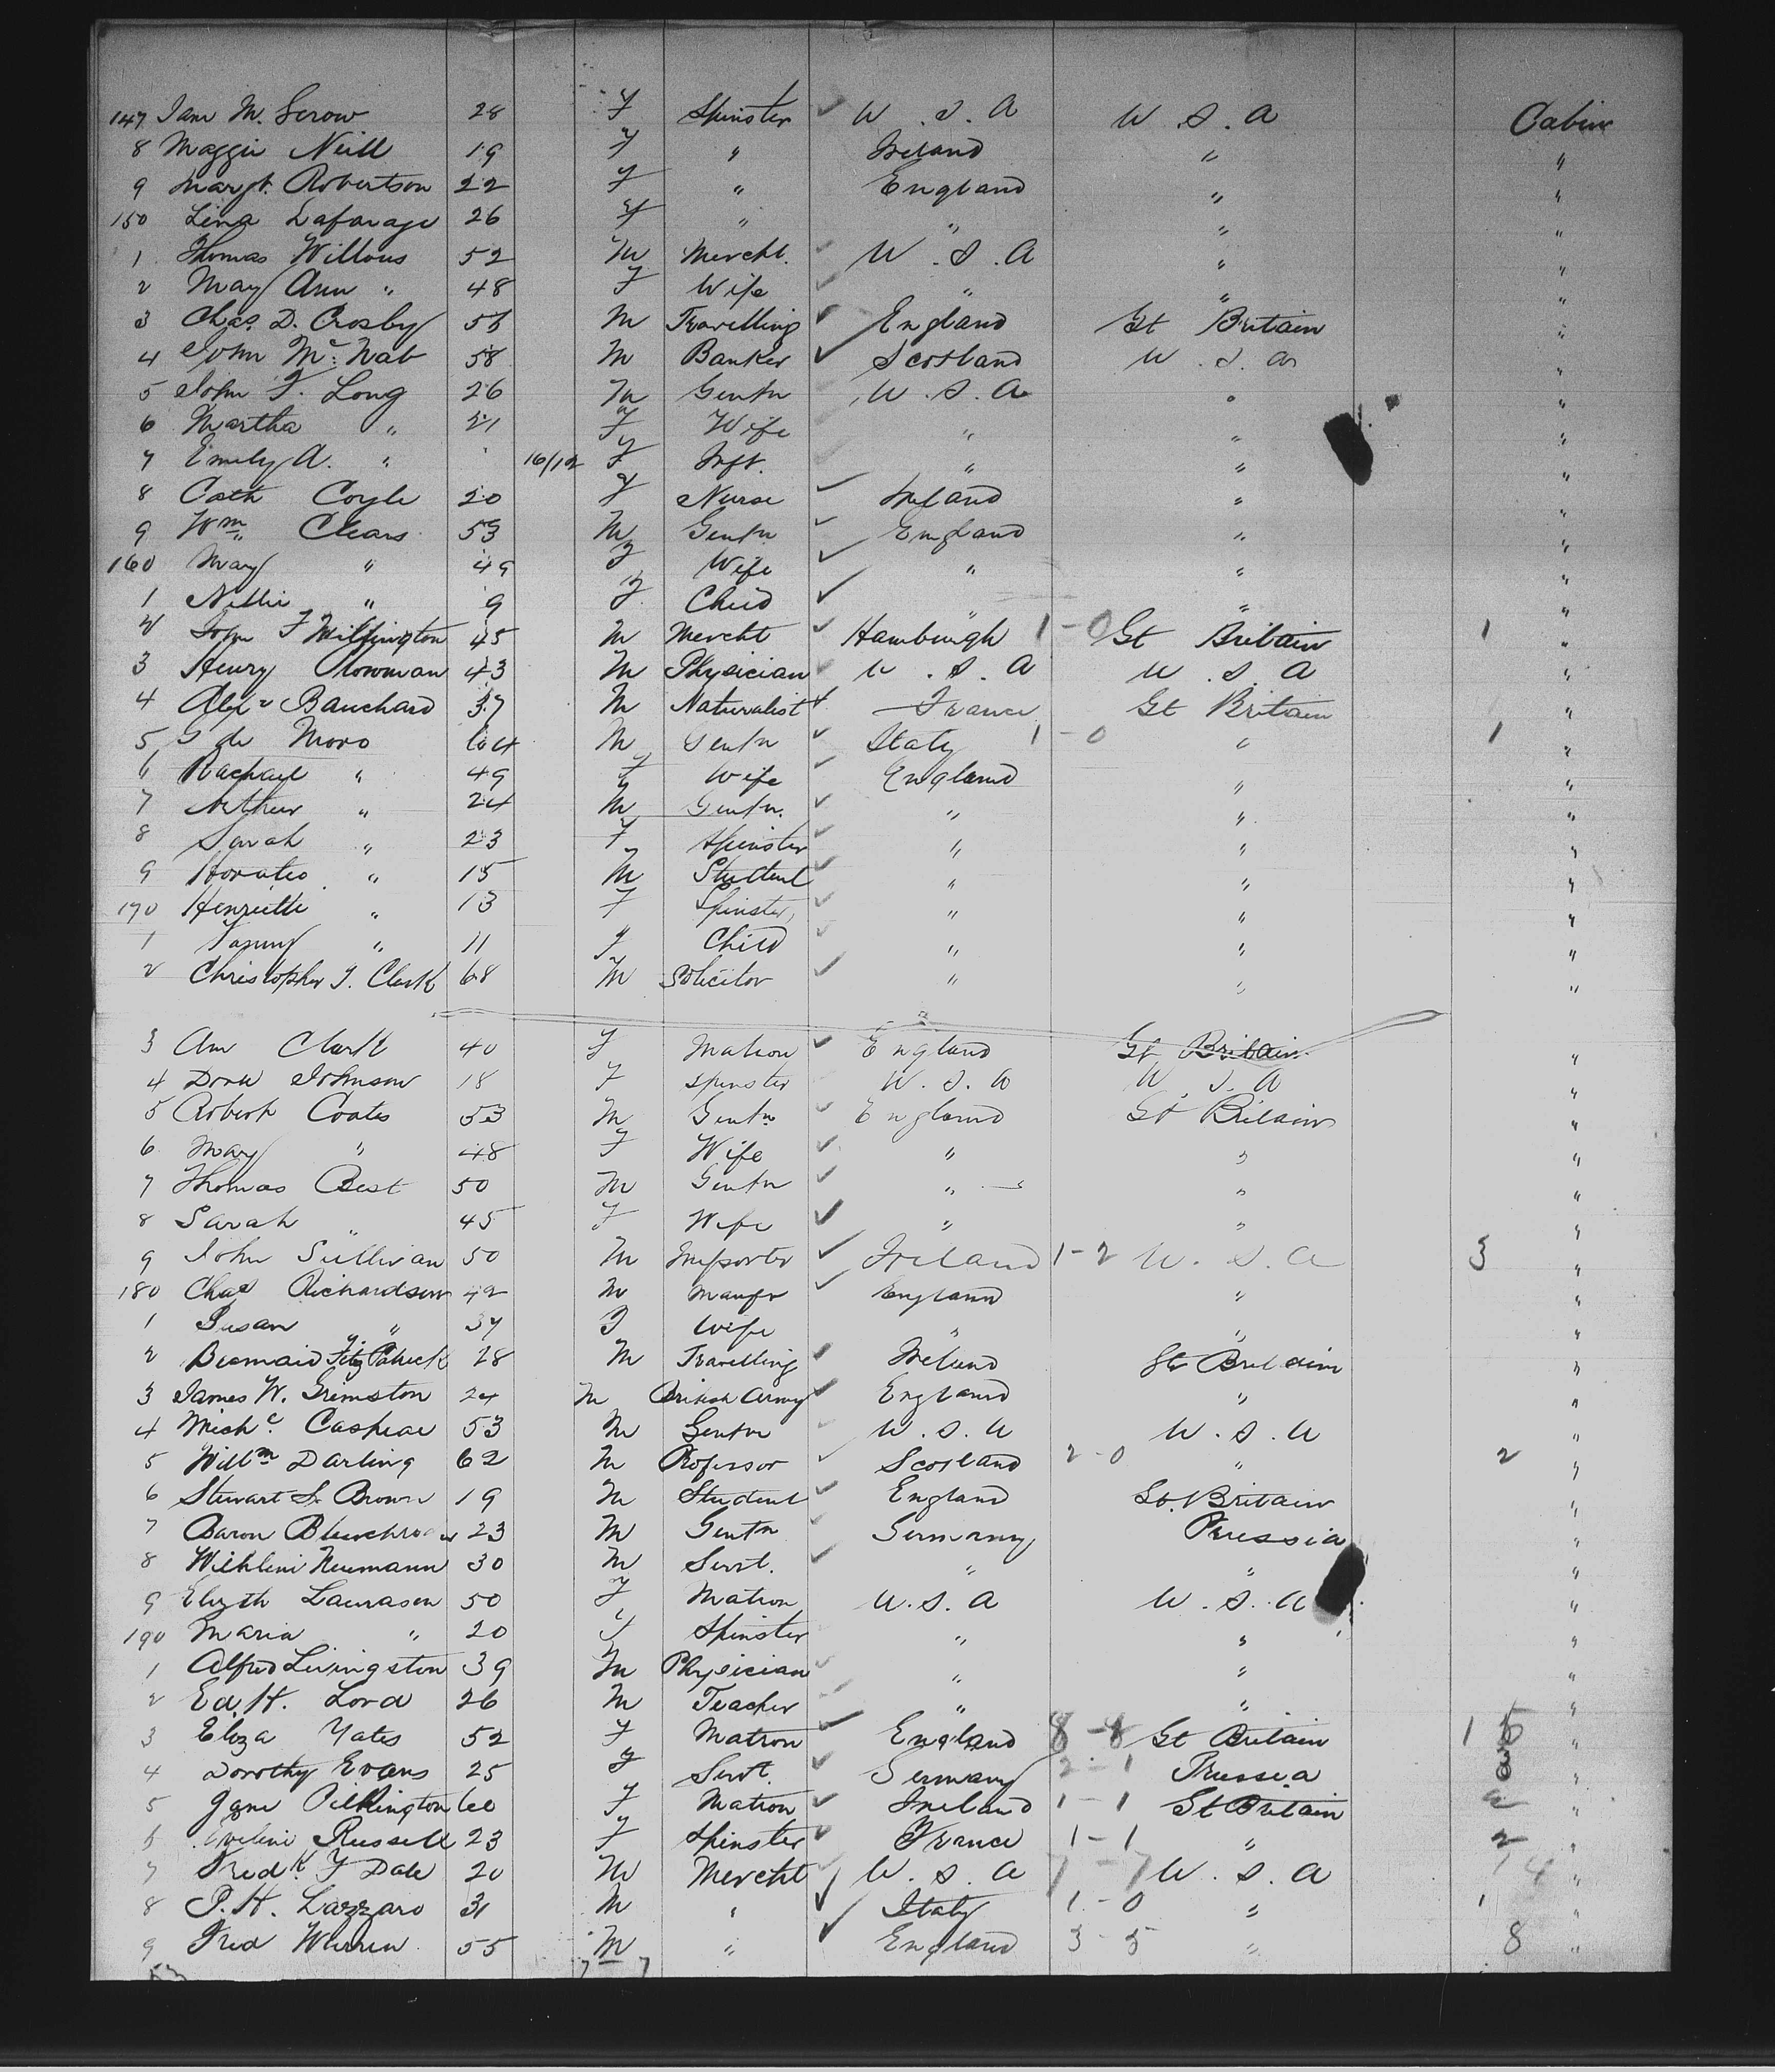 147 Jane M. Serow 28 F Spinster U.S.A U.S.A Cabin
8 Maggie Neill 19 F " Ireland " "
9 Margt. Robertson 22 F " England " "
150 Lina Lafarage 26 F " " " "
1 Thomas Willous 52 M Mercht. U.S.A " "
2 Mary Ann " 48 F Wife " " "
3 Chas. D. Crosby M Travelling England Gt Britain "
4 John Mc.Nab 58 M Banker Scotland U.S.A "
5 John F. Long 26 M Gentn U.S.A " "
6 Martha " 21 F Wife " " "
7 Emily A. " 16/12 F Inft. " " "
8 Cath Coyle 20 F Nurse Ireland " "
9 Wm Clears 53 M Gentn England " "
160 Mary " 49 F Wife " " "
1 Nellie " 9 F Child " " "
2 John F Millington 45 M Mercht Hamburgh 1-0 Gt Britain 1 "
3 Henry Plowman 43 M Physician U.S.A U.S.A "
4 Alexr Bauchard 37 M Naturalist France Gt Britain "
5 G de Moro 64 M Gentn Italy 1-0 " 1 "
6 Rachael " 49 F Wife England " "
7 Arthur " 24 M Gentn. " " "
8 Sarah " 23 F Spinster " " "
9 Horatio " 15 M Student " " "
170 Henriette " 13 F Spinster " " "
1 Fanny " 11 F Child " " "
2 Christopher J. Clark 68 M Solicitor " " "
3 Ann Clark 40 F Matron England Gt Britain "
4 Dora Johnson 18 F Spinster U.S.A U.S.A "
5 Robert Coates 53 M Gentn England Gt Britain "
6 Mary " 48 F Wife " " "
7 Thomas Best 50 M Gentn " " "
8 Sarah " 45 F Wife " " "
9 John Sullivan 50 M Importer Ireland 1-2 U.S.A 3 "
180 Chas Richardson 42 M Manufr England " "
1 Susan " 37 F Wife " " "
2 FitzPatrick 28 M Travelling Ireland Gt Britain "
3 James W. Grimston 24 M British Army England " "
4 Michl. Cashear 53 M Gentn U.S.A U.S.A "
5 Willm Darling 62 M Professor Scotland 2-0 " 2 "
6 Stewart S. Brown 19 M Student England Gt. Britain "
7 Baron 23 M Gentn Germany Prussia "
8 Wilhlem Neumann 30 M Servt. " " "
9 Elizth Laurason 50 F Matron U.S.A U.S.A "
190 Maria " 20 F Spinster " " "
1 Alfred Livingston 39 M Physician " " "
2 Ed. H. Lord 26 M Teacher " " "
3 Eliza Yates 52 F Matron England 8-8 Gt Britain "
4 Dorothy Evans 25 F Servt. Germany 2-1 Prussia 3 "
5 Jane Pilkington 60 F Matron Ireland 1-1 Gt Britain 2 "
6 Eveline Russell 23 F Spinster France 1-1 " 2 "
7 Fredk. F Dale 20 M Mercht U.S.A 7-7 U.S.A 14 "
8 P. H. Lazzaro 31 M " Italy 1-0 " 1 "
9 Fred Warren 55 M " England 3-5 " 8 "